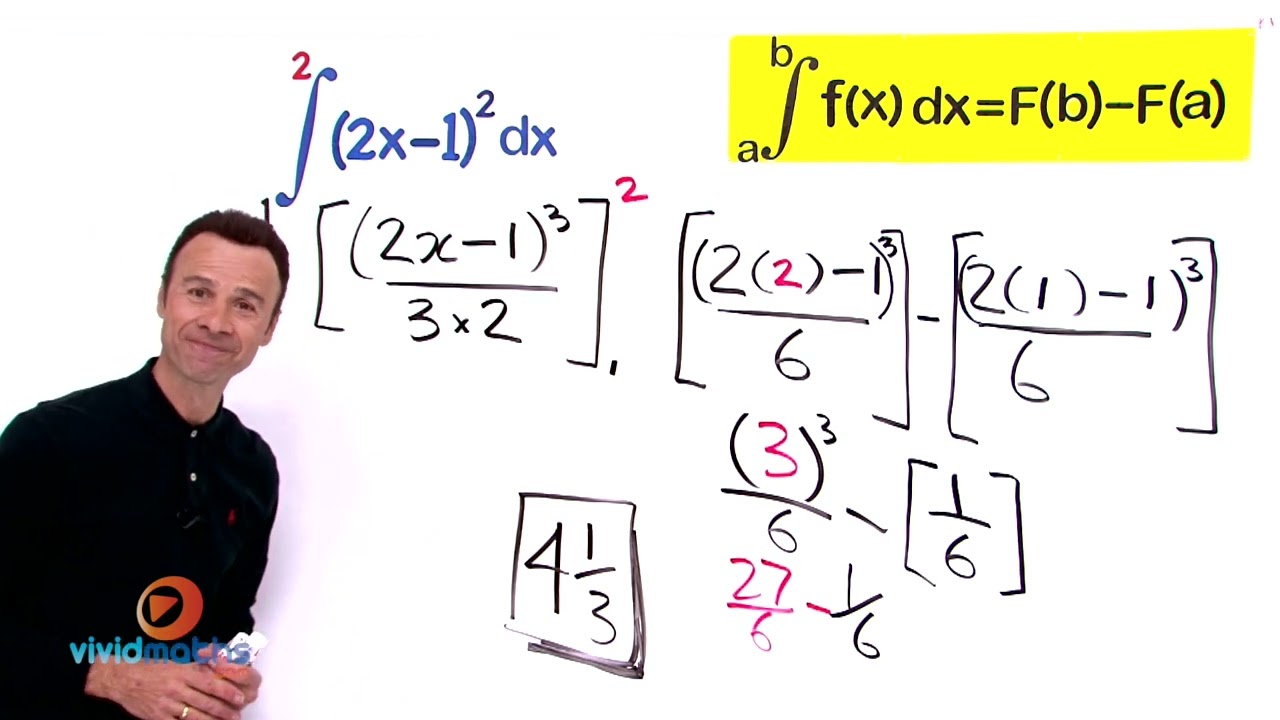 2
∫ (2x−1)² dx
1
b
∫ f(x) dx=F(b)−F(a)
a
[(2x−1)³ / 3×2]²₁
[(2(2)−1)³ / 6] − [(2(1)−1)³ / 6]
(3)³/6 − [1/6]
27/6 − 1/6
4 1/3
vividmaths